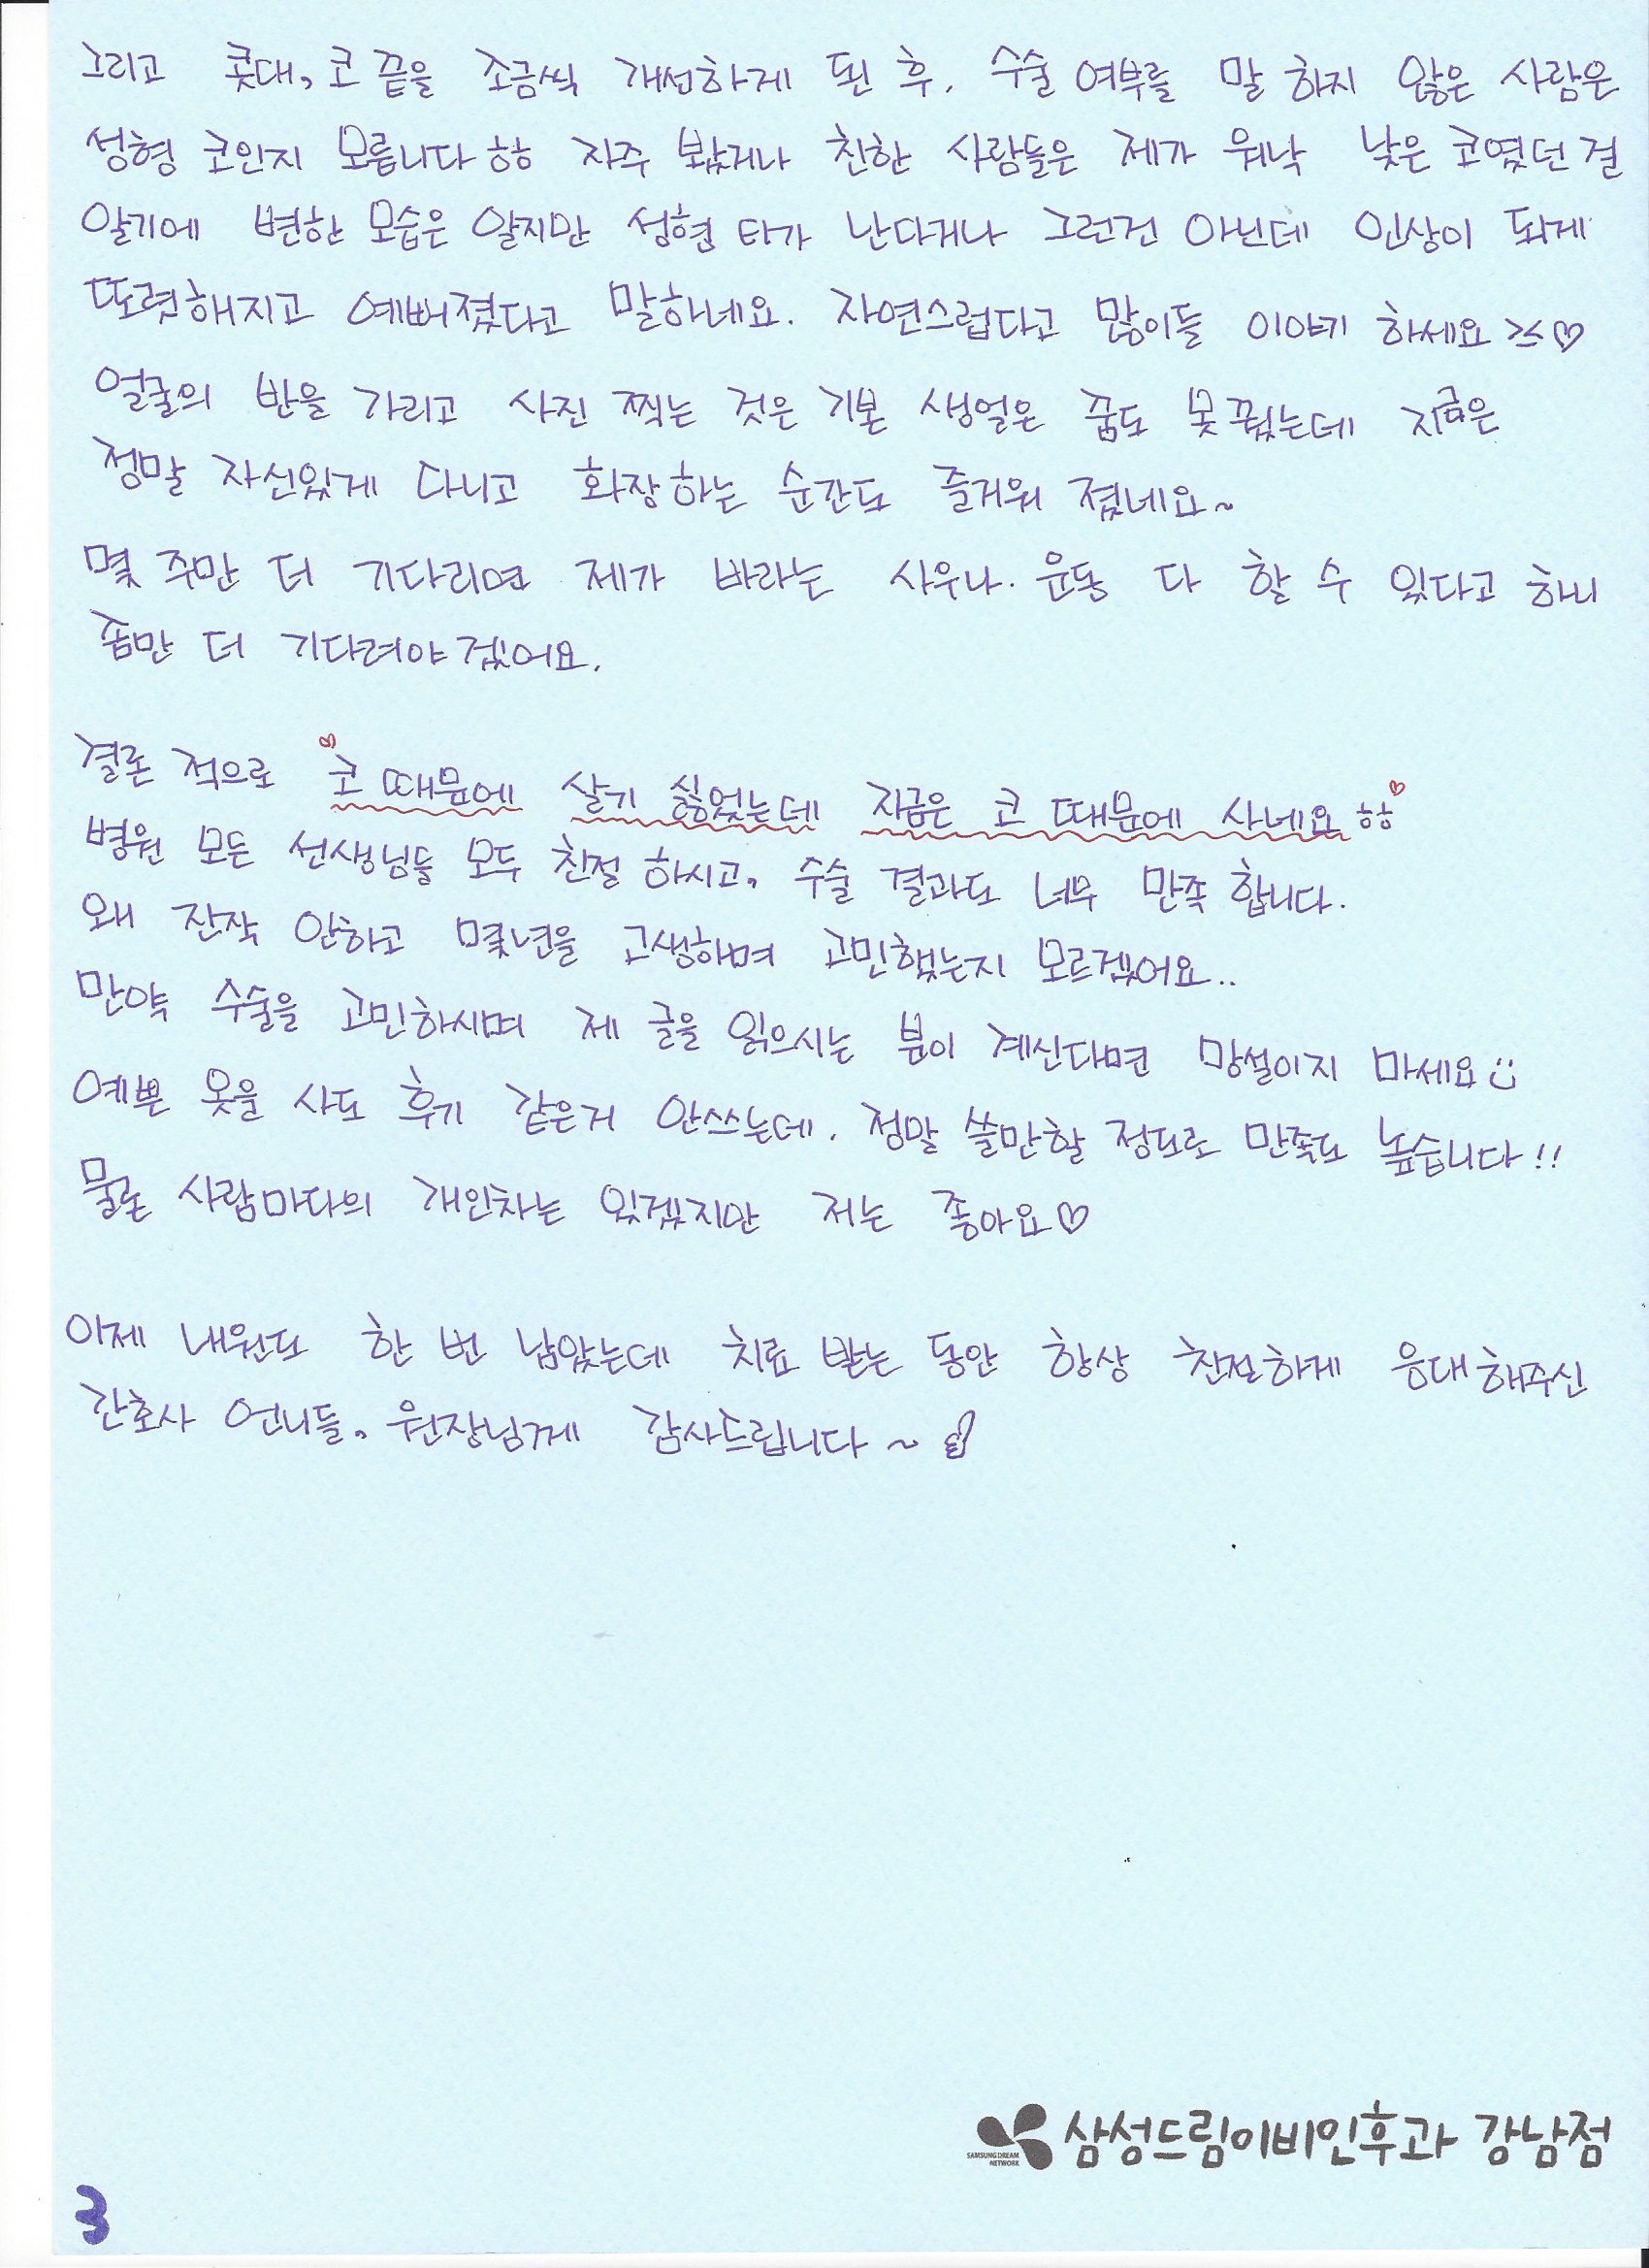 그리고 콧대, 코 끝을 조금씩 개선하게 된 후, 수술 여부를 말 하지 않은 사람은
성형 코인지 모릅니다 ㅎㅎ 자주 봤거나 친한 사람들은 제가 워낙 낮은 코였던 걸
알기에 변한 모습은 알지만 성형 티가 난다거나 그런건 아닌데 인상이 되게
또렷해지고 예뻐졌다고 말하네요. 자연스럽다고 많이들 이야기 하세요 >< ♡
얼굴의 반을 가리고 사진 찍는 것은 기본 생얼은 꿈도 못 꿨는데 지금은
정말 자신있게 다니고 화장하는 순간도 즐거워 졌네요~
몇 주만 더 기다리면 제가 바라는 사우나. 운동 다 할 수 있다고 하니
좀만 더 기다려야 겠어요.
결론 적으로 코 때문에 살기 싫었는데 지금은 코 때문에 사네요 ㅎㅎ
병원 모든 선생님들 모두 친절 하시고, 수술 결과도 너무 만족 합니다.
왜 진작 안하고 몇년을 고생하며 고민했는지 모르겠어요..
만약 수술을 고민하시며 제 글을 읽으시는 분이 계신다면 망설이지 마세요 :)
예쁜 옷을 사도 후기 같은거 안쓰는데. 정말 쓸만할 정도로 만족도 높습니다!!
물론 사람마다의 개인차는 있겠지만 저는 좋아요♡
이제 내원도 한 번 남았는데 치료 받는 동안 항상 친절하게 응대해주신
간호사 언니들, 원장님께 감사드립니다 ~
SAMSUNG DREAM NETWORK 삼성드림이비인후과 강남점
3